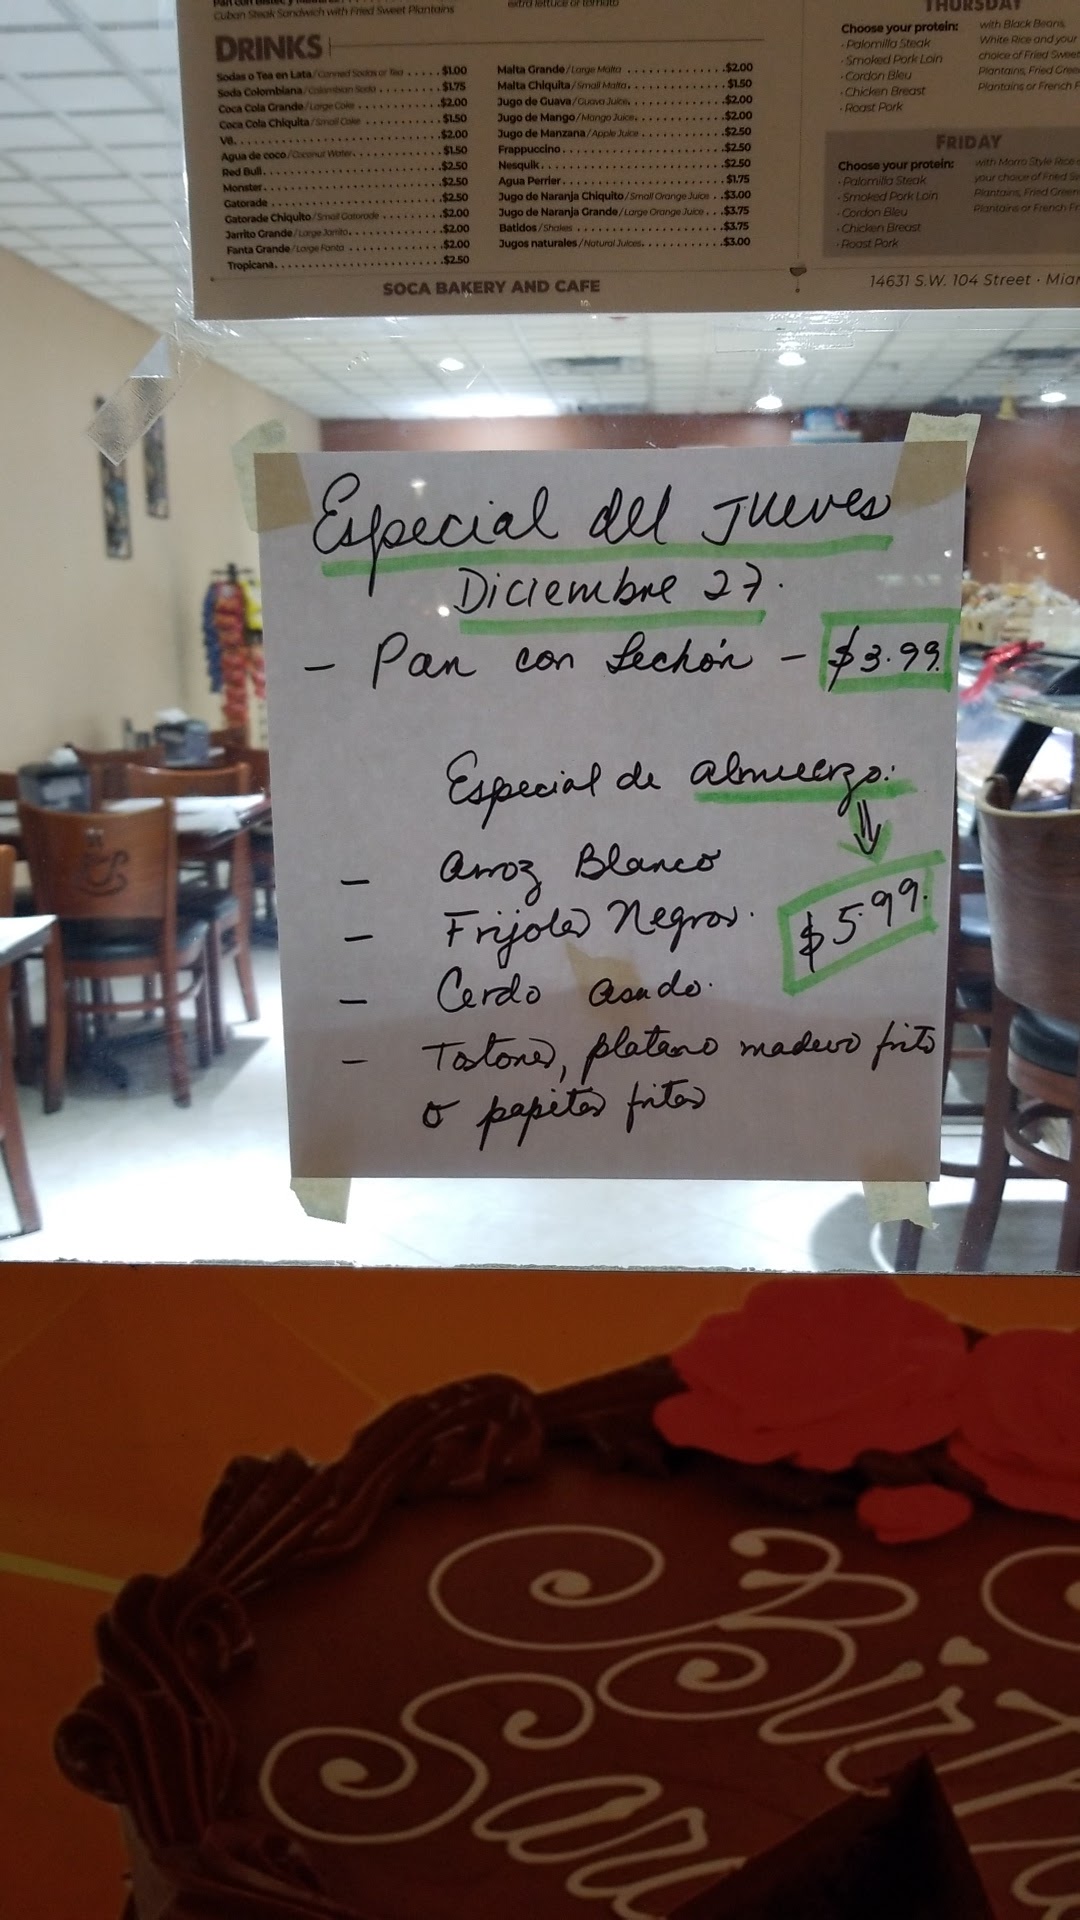 Cuban Steak Sandwich with Fried Sweet Plantains
extra lettuce or tomato
DRINKS
Sodas o Tea en Lata / Canned Sodas or Tea ..... $1.00
Soda Colombiana / Colombian Soda ..... $1.75
Coca Cola Grande / Large Coke ..... $2.00
Coca Cola Chiquita / Small Coke ..... $1.50
V8 ..... $2.00
Agua de coco / Coconut Water ..... $1.50
Red Bull ..... $2.50
Monster ..... $2.50
Gatorade ..... $2.50
Gatorade Chiquito / Small Gatorade ..... $2.00
Jarrito Grande / Large Jarrito ..... $2.00
Fanta Grande / Large Fanta ..... $2.00
Tropicana ..... $2.50
Malta Grande / Large Malta ..... $2.00
Malta Chiquita / Small Malta ..... $1.50
Jugo de Guava / Guava Juice ..... $2.00
Jugo de Mango / Mango Juice ..... $2.00
Jugo de Manzana / Apple Juice ..... $2.50
Frappuccino ..... $2.50
Nesquik ..... $2.50
Agua Perrier ..... $1.75
Jugo de Naranja Chiquito / Small Orange Juice ... $3.00
Jugo de Naranja Grande / Large Orange Juice ... $3.75
Batidos / Shakes ..... $3.75
Jugos naturales / Natural Juices ..... $3.00
THURSDAY
Choose your protein:
· Palomilla Steak
· Smoked Pork Loin
· Cordon Bleu
· Chicken Breast
· Roast Pork
with Black Beans,
White Rice and your
choice of Fried Sweet
Plantains, Fried Green
Plantains or French F
FRIDAY
Choose your protein:
· Palomilla Steak
· Smoked Pork Loin
· Cordon Bleu
· Chicken Breast
· Roast Pork
with Morro Style Rice
your choice of Fried
Plantains, Fried Green
Plantains or French Fr
SOCA BAKERY AND CAFE
14631 S.W. 104 Street · Miam
Especial del Jueves
Diciembre 27.
- Pan con Lechón - $3.99
Especial de almuerzo:
$5.99.
- Arroz Blanco
- Frijoles Negros.
- Cerdo asado.
- Tostones, platano maduro frito
o papitas fritas
Birt
Sara